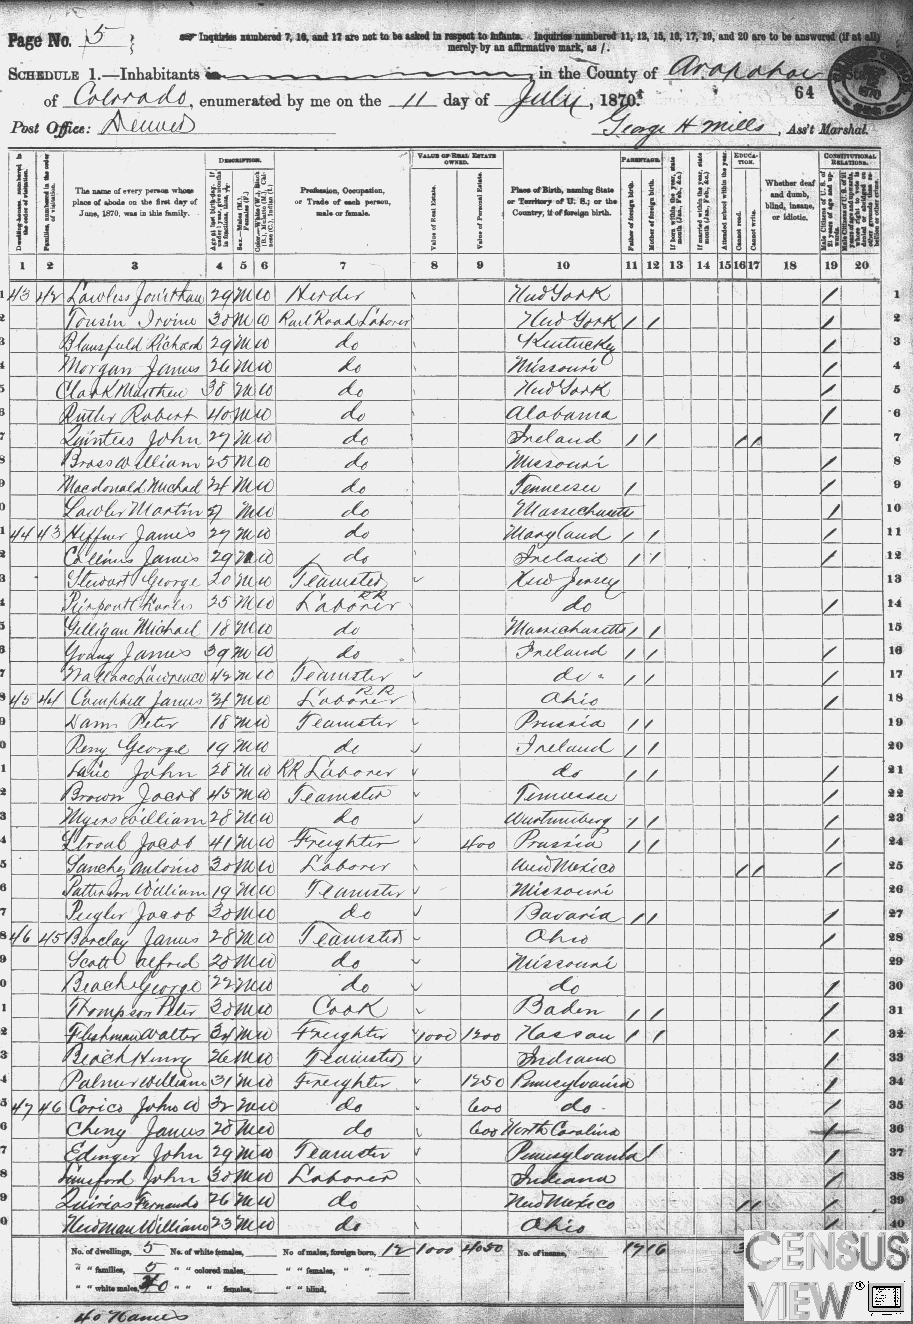 Page No. 5
Inquiries numbered 7, 16, and 17 are not to be asked in respect to infants. Inquiries numbered 11, 12, 15, 16, 17, 19, and 20 are to be answered (if at all)
merely by an affirmative mark, as /.
Schedule 1.—Inhabitants in the County of Arapahoe, State
of Colorado, enumerated by me on the 11 day of July, 1870. 64
Post Office: Denver George H Mills, Ass't Marshal.
Description. Value of Real Estate Owned. Parentage. Education. Constitutional Relations.
Dwelling-houses, numbered in the order of visitation.
Families, numbered in the order of visitation.
The name of every person whose place of abode on the first day of June, 1870, was in this family.
Profession, Occupation, or Trade of each person, male or female.
Value of Real Estate.
Value of Personal Estate.
Place of Birth, naming State or Territory of U. S.; or the Country, if of foreign birth.
Father of foreign birth.
Mother of foreign birth.
Attended school within the year.
Cannot read.
Cannot write.
Whether deaf and dumb, blind, insane, or idiotic.
1 2 3 4 5 6 7 8 9 10 11 12 13 14 15 16 17 18 19 20
1 43 42 Lawless Jonathan 29 M W Herder New York / 1
2 Tousin Irvine 30 M W Rail Road Laborer New York / / / 2
3 Blansfield Richard 29 M W do Kentucky / 3
4 Morgan James 26 M W do Missouri / 4
5 Clark Matthew 38 M W do New York / 5
6 Rutler Robert 40 M W do Alabama / 6
7 John 27 M W do Ireland / / / / 7
8 Bross William 25 M W do Missouri / 8
9 Macdonald Michael 24 M W do Tennessee / / 9
10 Lawler Martin 27 M W do Massachusetts / 10
11 44 43 Heffner James 27 M W do Maryland / / / 11
12 Collins James 29 M W do Ireland / / / 12
13 Stewart George 20 M W Teamster New Jersey 13
14 Pierpont 25 M W Laborer RR do / 14
15 Gilligan Michael 18 M W do Massachusetts / / 15
16 Young James 39 M W do Ireland / / / 16
17 Wallace Lawrence 42 M W Teamster do / / / 17
18 45 44 Campbell James 24 M W Laborer RR Ohio / 18
19 Peter 18 M W Teamster Prussia / / 19
20 Perry George 19 M W do Ireland / / 20
21 John 28 M W RR Laborer do / / / 21
22 Brown Jacob 45 M W Teamster Tennessee / 22
23 Myers William 28 M W do Wurtemberg / / / 23
24 Stroul Jacob 41 M W Freighter 400 Prussia / / / 24
25 Sanchez Antonio 30 M W Laborer New Mexico / / / 25
26 Patterson William 19 M W Teamster Missouri 26
27 Jacob 30 M W do Bavaria / / / 27
28 46 45 Barclay James 28 M W Teamster Ohio / 28
29 Scott Alfred 20 M W do Missouri 29
30 Beach George 22 M W do do / 30
31 Thompson Peter 30 M W Cook Baden / / / 31
32 Fleshman Walter 34 M W Freighter 1000 1200 Nassau / / / 32
33 Beach Henry 26 M W Teamster Indiana / 33
34 Palmer William 31 M W Freighter 1250 Pennsylvania / 34
35 47 46 Corico John W 32 M W do 600 do / 35
36 Cheny James 28 M W do 600 North Carolina / 36
37 Edinger John 29 M W Teamster Pennsylvania / / / 37
38 Lunsford John 30 M W Laborer Indiana / 38
39 Quirios Fernando 26 M W do New Mexico / / / 39
40 Newman William 23 M W do Ohio / 40
No. of dwellings, 5 No. of white females, No. of males, foreign born, 12 1000 4050 No. of insane, 17 16 3
" " families, 5 " " colored males, " " females, " "
" " white males, 40 " " " females, " " blind,
40 Names
CENSUS
VIEW